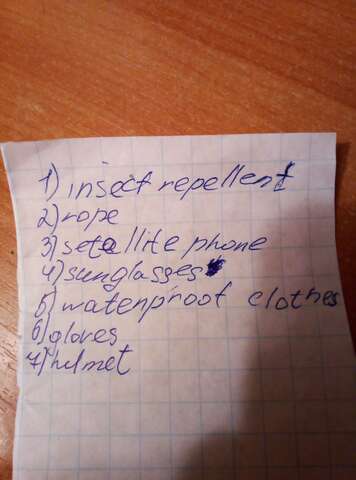 1) insect repellent
2) rope
3) setellite phone
4) sunglasses
5) watenproof clothes
6) gloves
7) helmet